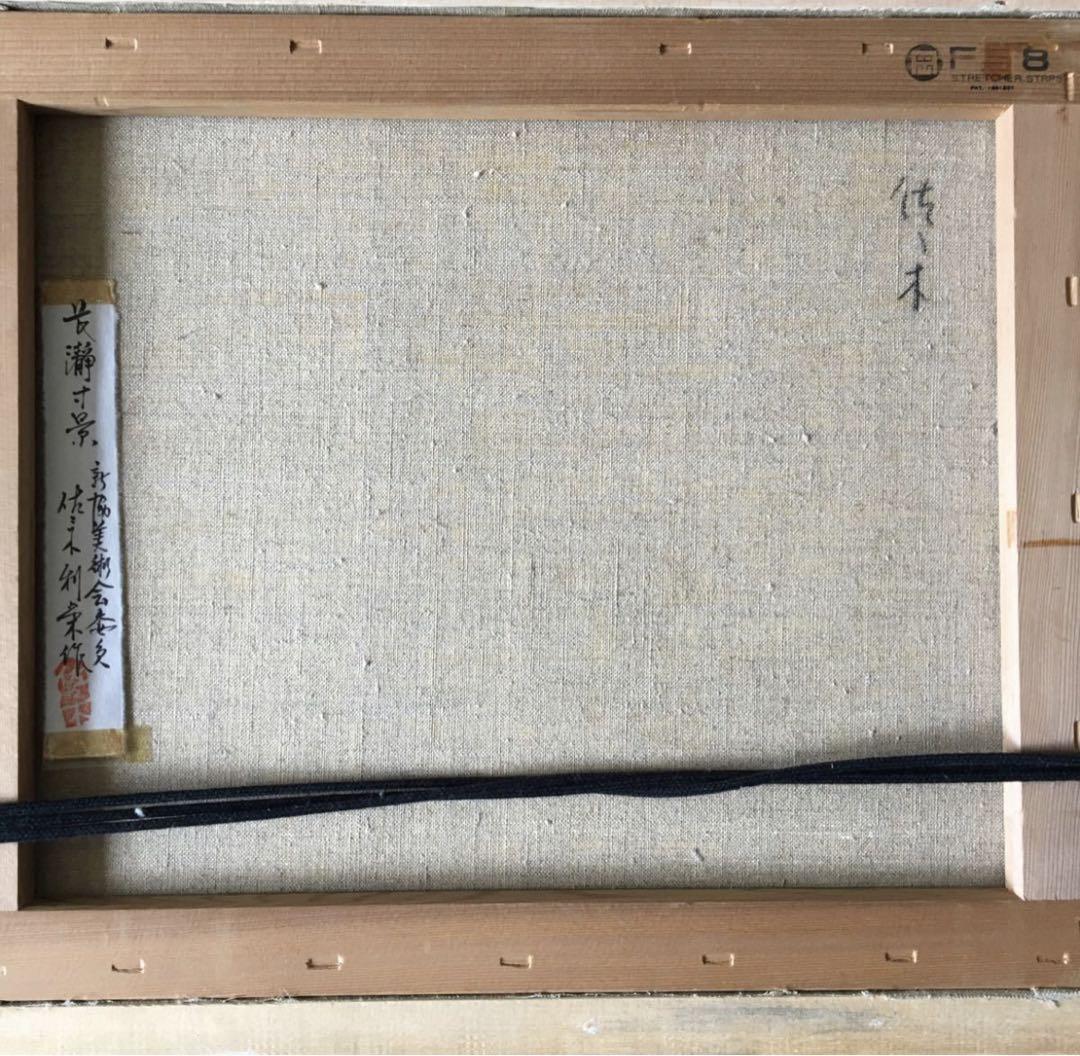 F 8
STRETCHER.STRPS
佐々木
長瀞寸景
新協美術会委員
佐々木利栄作